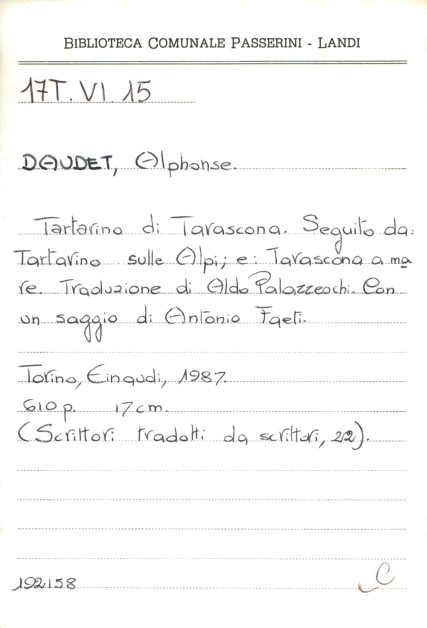 BIBLIOTECA COMUNALE PASSERINI - LANDI
17T. VI 15
DAUDET, Alphonse.
Tartarino di Tarascona. Seguito da:
Tartarino sulle Alpi; e: Tarascona a ma
re. Traduzione di Aldo Palazzeschi. Con
un saggio di Antonio Faeti.
Torino, Einaudi, 1987.
610 p. 17 cm.
(Scrittori tradotti da scrittori, 22).
192158
C